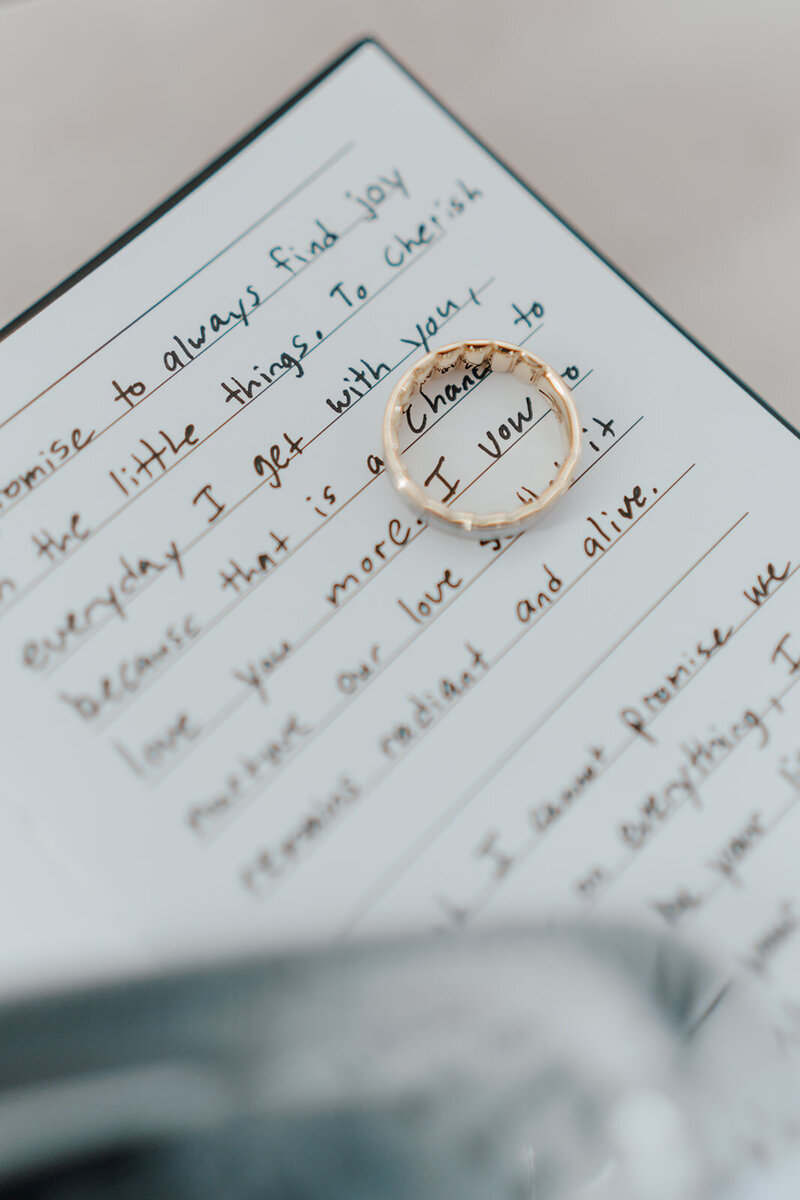 promise to always find joy
in the little things. To cherish
everyday I get with you,
because that is a chance to
love you more. I vow to
nurture our love so that it
remains radiant and alive.
I cannot promise we
on everything, I
be your
your